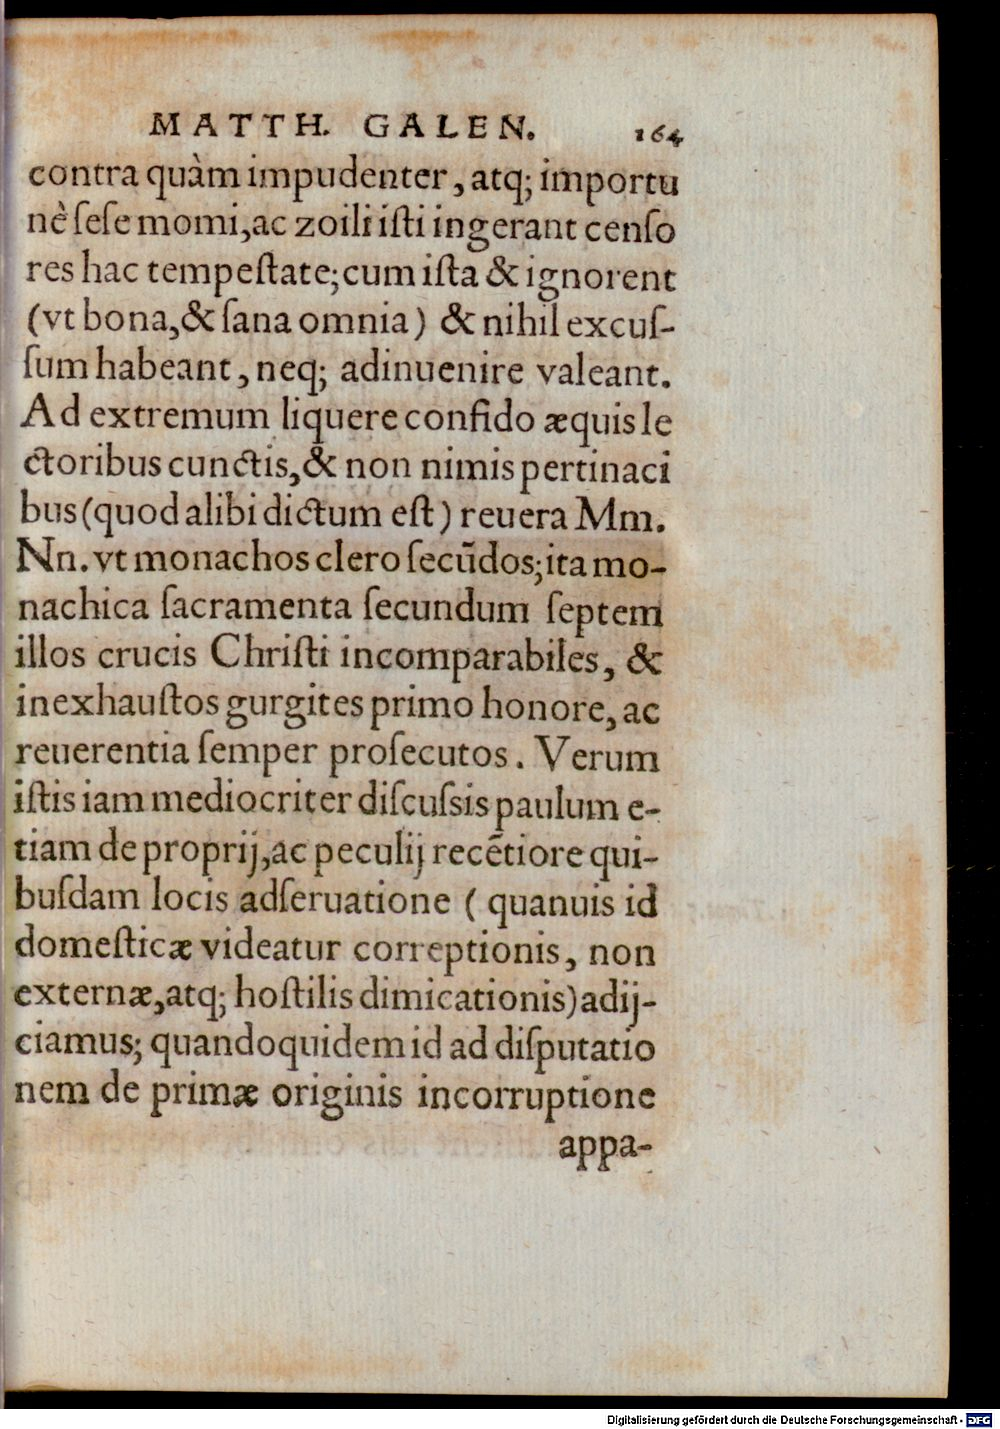 MATTH. GALEN. 164
contra quàm impudenter, atq; importu
nè ſeſe momi, ac zoili iſti ingerant cenſo
res hac tempeſtate; cum iſta & ignorent
(vt bona, & ſana omnia) & nihil excuſ-
ſum habeant, neq; adinuenire valeant.
Ad extremum liquere confido æquis le
ctoribus cunctis, & non nimis pertinaci
bus (quod alibi dictum eſt) reuera Mm.
Nn. vt monachos clero ſecūdos; ita mo-
nachica ſacramenta ſecundum ſeptem
illos crucis Chriſti incomparabiles, &
inexhauſtos gurgites primo honore, ac
reuerentia ſemper proſecutos. Verum
iſtis iam mediocriter diſcuſsis paulum e-
tiam de proprij, ac peculij recētiore qui-
buſdam locis adſeruatione ( quanuis id
domeſticæ videatur correptionis, non
externæ, atq; hoſtilis dimicationis) adij-
ciamus; quandoquidem id ad diſputatio
nem de primæ originis incorruptione
appa-
Digitalisierung gefördert durch die Deutsche Forschungsgemeinschaft - DFG